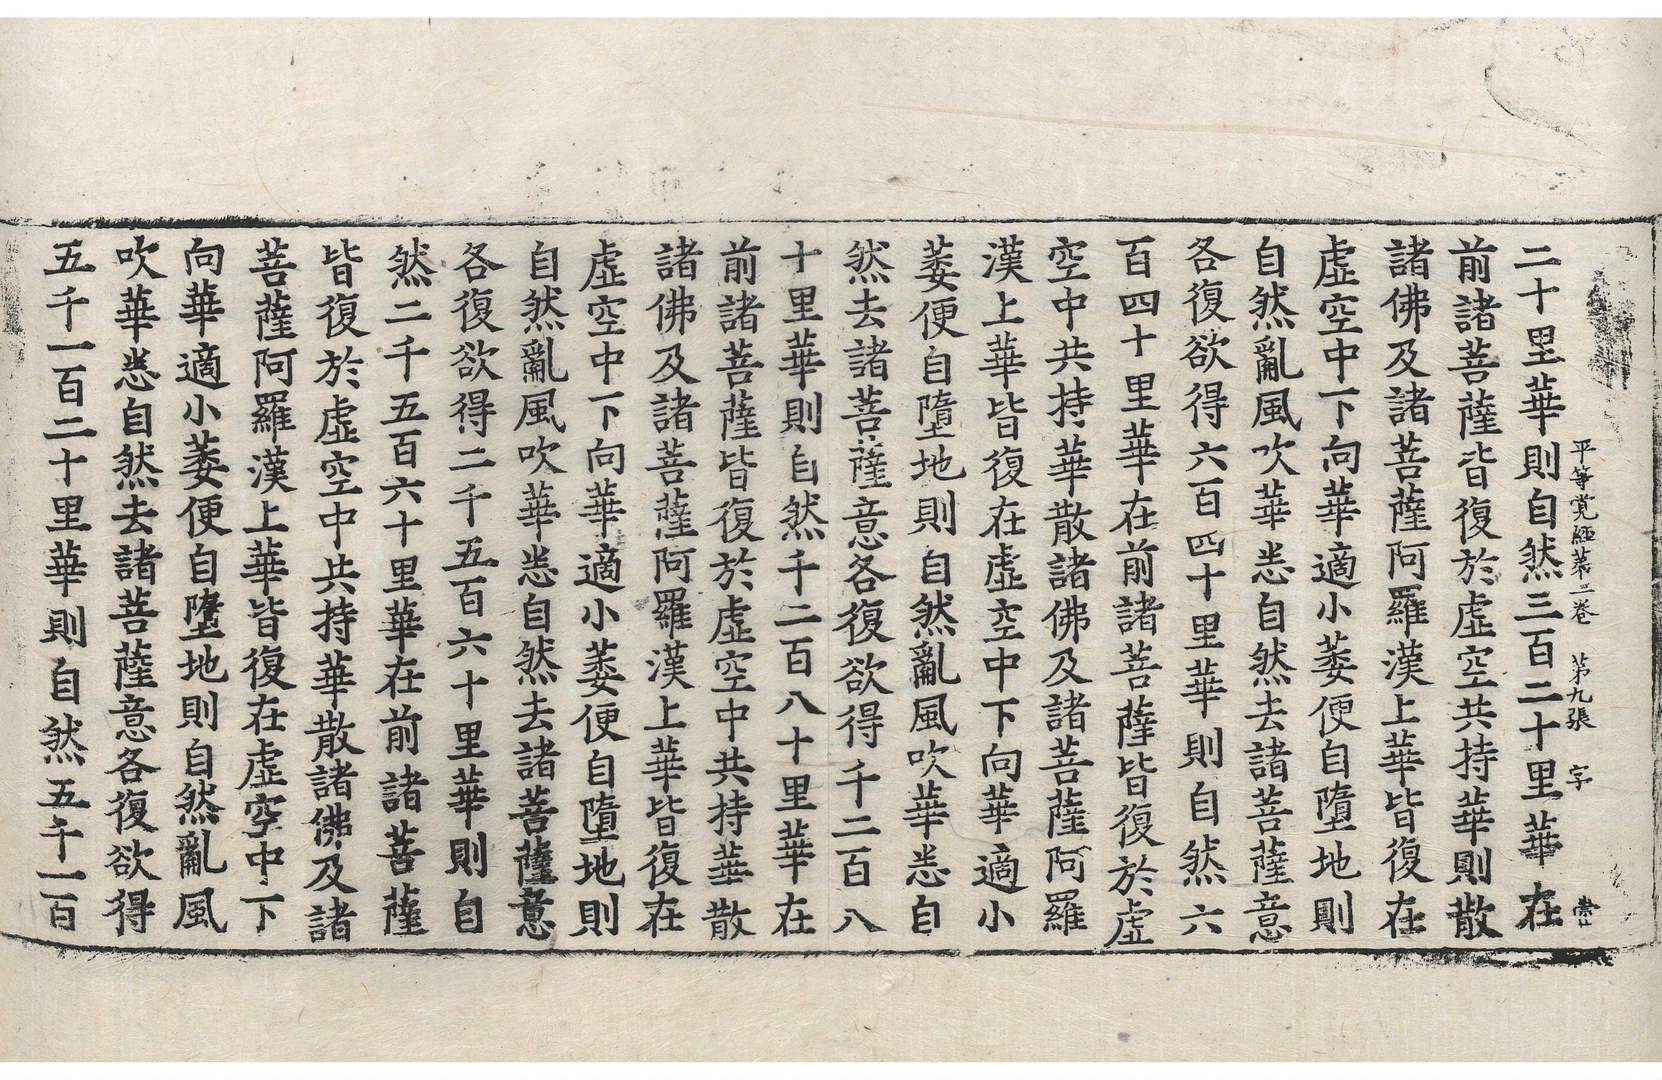 平等覚經苐二卷 第九張 字
二十里華則自然三百二十里華在
前諸菩薩皆復於虛空共持華則散
諸佛及諸菩薩阿羅漢上華皆復在
虛空中下向華適小萎便自墮地則
自然亂風吹華悉自然去諸菩薩意
各復欲得六百四十里華則自然六
百四十里華在前諸菩薩皆復於虛
空中共持華散諸佛及諸菩薩阿羅
漢上華皆復在虛空中下向華適小
萎便自墮地則自然亂風吹華悉自
然去諸菩薩意各復欲得千二百八
十里華則自然千二百八十里華在
前諸菩薩皆復於虛空中共持華散
諸佛及諸菩薩阿羅漢上華皆復在
虛空中下向華適小萎便自墮地則
自然亂風吹華悉自然去諸菩薩意
各復欲得二千五百六十里華則自
然二千五百六十里華在前諸菩薩
皆復於虛空中共持華散諸佛及諸
菩薩阿羅漢上華皆復在虛空中下
向華適小萎便自墮地則自然亂風
吹華悉自然去諸菩薩意各復欲得
五千一百二十里華則自然五千一百